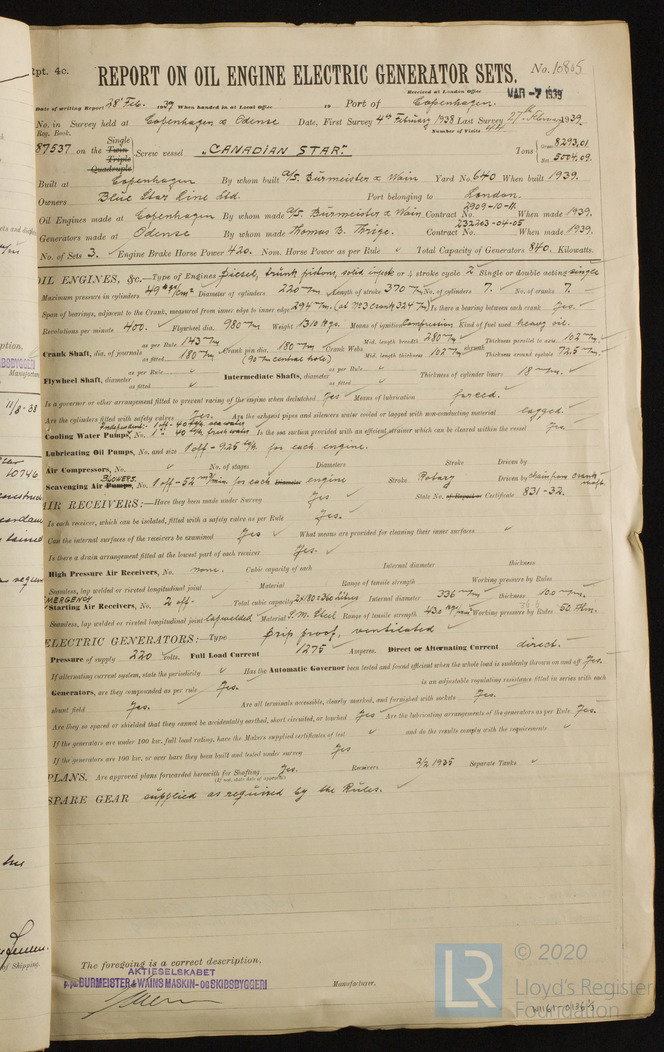 Rpt. 4c.
REPORT ON OIL ENGINE ELECTRIC GENERATOR SETS.
No. 10805
Received at London Office MAR -7 1939
Date of writing Report 28' Feb. 1939 When handed in at Local Office 19 Port of Copenhagen.
No. in Reg. Book. Survey held at Copenhagen & Odense Date, First Survey 4th February 1938 Last Survey 27th February 1939.
Number of Visits 44
87537 on the Single Twin Triple Quadruple Screw vessel "CANADIAN STAR" Tons Gross 8293,01 Net 5004,09.
Built at Copenhagen By whom built A/S. Burmeister & Wain Yard No. 640 When built 1939.
Owners Blue Star Line Ltd. Port belonging to London.
Oil Engines made at Copenhagen By whom made A/S. Burmeister & Wain Contract No. 2909-10-11. When made 1939.
Generators made at Odense By whom made Thomas B. Thrige. Contract No. 232203-04-05 When made 1939.
No. of Sets 3. Engine Brake Horse Power 420. Nom. Horse Power as per Rule Total Capacity of Generators 840. Kilowatts.
OIL ENGINES, &c.—Type of Engines Diesel, trunk piston, solid inject. 2 or 4 stroke cycle 2. Single or double acting single
Maximum pressure in cylinders 49 kgs/cm² Diameter of cylinders 220 m/m Length of stroke 370 m/m No. of cylinders 7. No. of cranks 7.
Span of bearings, adjacent to the Crank, measured from inner edge to inner edge 294 m/m. (at No 3 Crank 324 m/m) Is there a bearing between each crank Yes.
Revolutions per minute 400. Flywheel dia. 980 m/m Weight 1310 kgs. Means of ignition Compression Kind of fuel used heavy oil.
Crank Shaft, dia. of journals as per Rule 143 m/m as fitted 180 m/m Crank pin dia. 180 m/m (90 m/m central hole) Crank Webs Mid. length breadth 280 m/m Mid. length thickness 102 m/m shrunk Thickness parallel to axis 102 m/m Thickness around eyehole 72.5 m/m
Flywheel Shaft, diameter as per Rule as fitted Intermediate Shafts, diameter as per Rule as fitted Thickness of cylinder liners 18 m/m.
Is a governor or other arrangement fitted to prevent racing of the engine when declutched Yes Means of lubrication forced.
Are the cylinders fitted with safety valves Yes. Are the exhaust pipes and silencers water cooled or lagged with non-conducting material lagged.
Cooling Water Pumps, No. Independent: 1 off - 40 t/h sea water 1 " 40 t/h fresh water Is the sea suction provided with an efficient strainer which can be cleared within the vessel Yes
Lubricating Oil Pumps, No. and size 1 off - 9.25 t/h for each engine.
Air Compressors, No. No. of stages Diameters Stroke Driven by
Scavenging Air Pumps, BLOWERS. No. 1 off - 52 m³/min for each Diameter engine Stroke Rotary Driven by chain from crankshaft.
AIR RECEIVERS:—Have they been made under Survey Yes State No. of Report or Certificate 831-32.
Is each receiver, which can be isolated, fitted with a safety valve as per Rule Yes.
Can the internal surfaces of the receivers be examined Yes What means are provided for cleaning their inner surfaces
Is there a drain arrangement fitted at the lowest part of each receiver Yes.
High Pressure Air Receivers, No. none. Cubic capacity of each Internal diameter thickness
Seamless, lap welded or riveted longitudinal joint Material Range of tensile strength Working pressure by Rules
EMERGENCY
Starting Air Receivers, No. 2 off. Total cubic capacity 2x180=360 litres Internal diameter 336 m/m thickness 10.0 m/m.
Seamless, lap welded or riveted longitudinal joint lapwelded Material S.M. Steel Range of tensile strength Working pressure by Rules
ELECTRIC GENERATORS:—Type Drip proof, ventilated
Pressure of supply 220 volts. Full Load Current 1275 Amperes. Direct or Alternating Current direct.
If alternating current system, state the periodicity Has the Automatic Governor been tested and found efficient when the whole load is suddenly thrown on and off Yes.
Generators, are they compounded as per rule Yes. is an adjustable regulating resistance fitted in series with each
shunt field Yes. Are all terminals accessible, clearly marked, and furnished with sockets Yes.
Are they so spaced or shielded that they cannot be accidentally earthed, short circuited, or touched Yes Are the lubricating arrangements of the generators as per Rule Yes.
If the generators are under 100 kw. full load rating, have the Makers supplied certificates of test and do the results comply with the requirements
If the generators are 100 kw. or over have they been built and tested under survey Yes
PLANS. Are approved plans forwarded herewith for Shafting Yes. Receivers 2/2 1935 Separate Tanks
(If not, state date of approval)
SPARE GEAR supplied as required by the Rules.
The foregoing is a correct description,
AKTIESELSKABET
BURMEISTER & WAINS MASKIN- OG SKIBSBYGGERI
Manufacturer.
LR © 2020
Lloyd's Register
Foundation
11/8-38
10746
of Shipping.